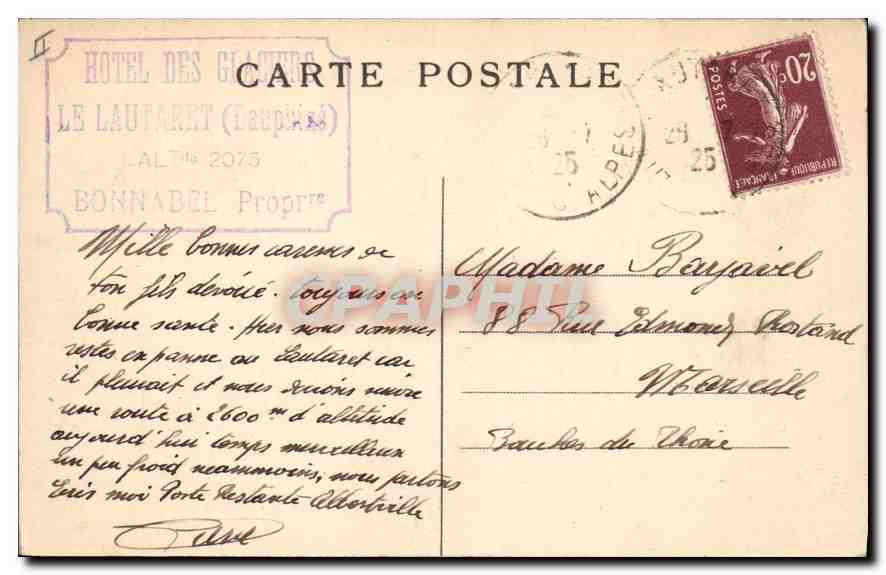 II
HOTEL DES GLACIERS
LE LAUTARET (Dauphiné)
ALTde 2075
BONNABEL Proprre
CARTE POSTALE
25
ALPES
25
20c
POSTES
REPUBLIQUE FRANÇAISE
Mille bonnes caresses de
ton fils dévoué. toujours en
bonne santé. Hier nous sommes
restés en panne au Lautaret car
il pleuvait et nous devions suivre
une route à 2600 m d'altitude
aujourd'hui temps merveilleux
un peu froid néammoins, nous partons
Ecris moi Poste Restante Albertville
Madame Barjavel
88 Rue Edmond Rostand
Marseille
Bouches du Rhône
CPAPHIL